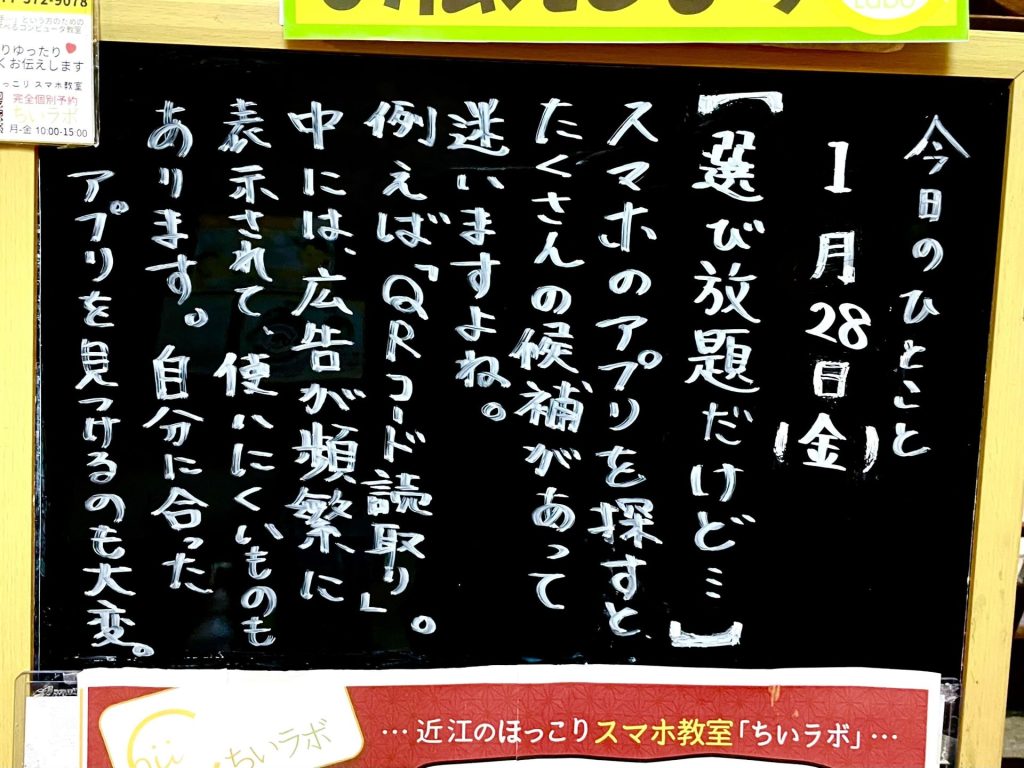 572-9078
という方のための
コンピュータ教室
りゆったり
くお伝えします
っこりスマホ教室
完全個別予約
ちいラボ
月-金 10:00-15:00
お伝えします
Labo
今日のひとこと
1月28日(金)
【選び放題だけど…】
スマホのアプリを探すと、
たくさんの候補があって
迷いますよね。
例えば「QRコード読取り」。
中には、広告が頻繁に
表示されて、使いにくいものも
あります。自分に合った
アプリを見つけるのも大変。
ちいラボ
…近江のほっこりスマホ教室「ちいラボ」…